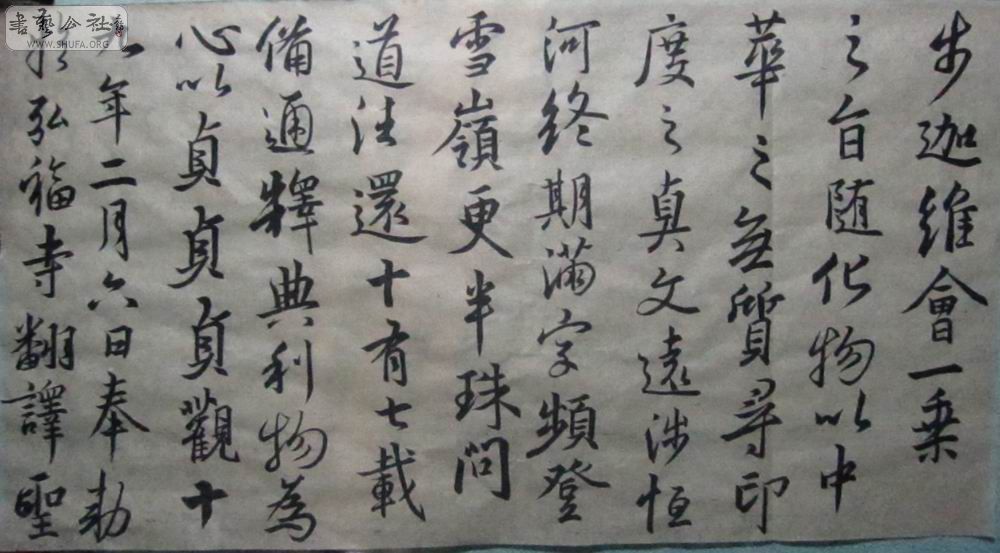 步迦維會一乘
之旨随化物以中
華之無質尋印
度之真文遠涉恒
河終期滿字頻登
雪嶺更半珠問
道往還十有七載
備通釋典利物為
心以貞貞貞觀十
九年二月六日奉勅
於弘福寺翻譯聖
書藝公社
WWW.SHUFA.ORG